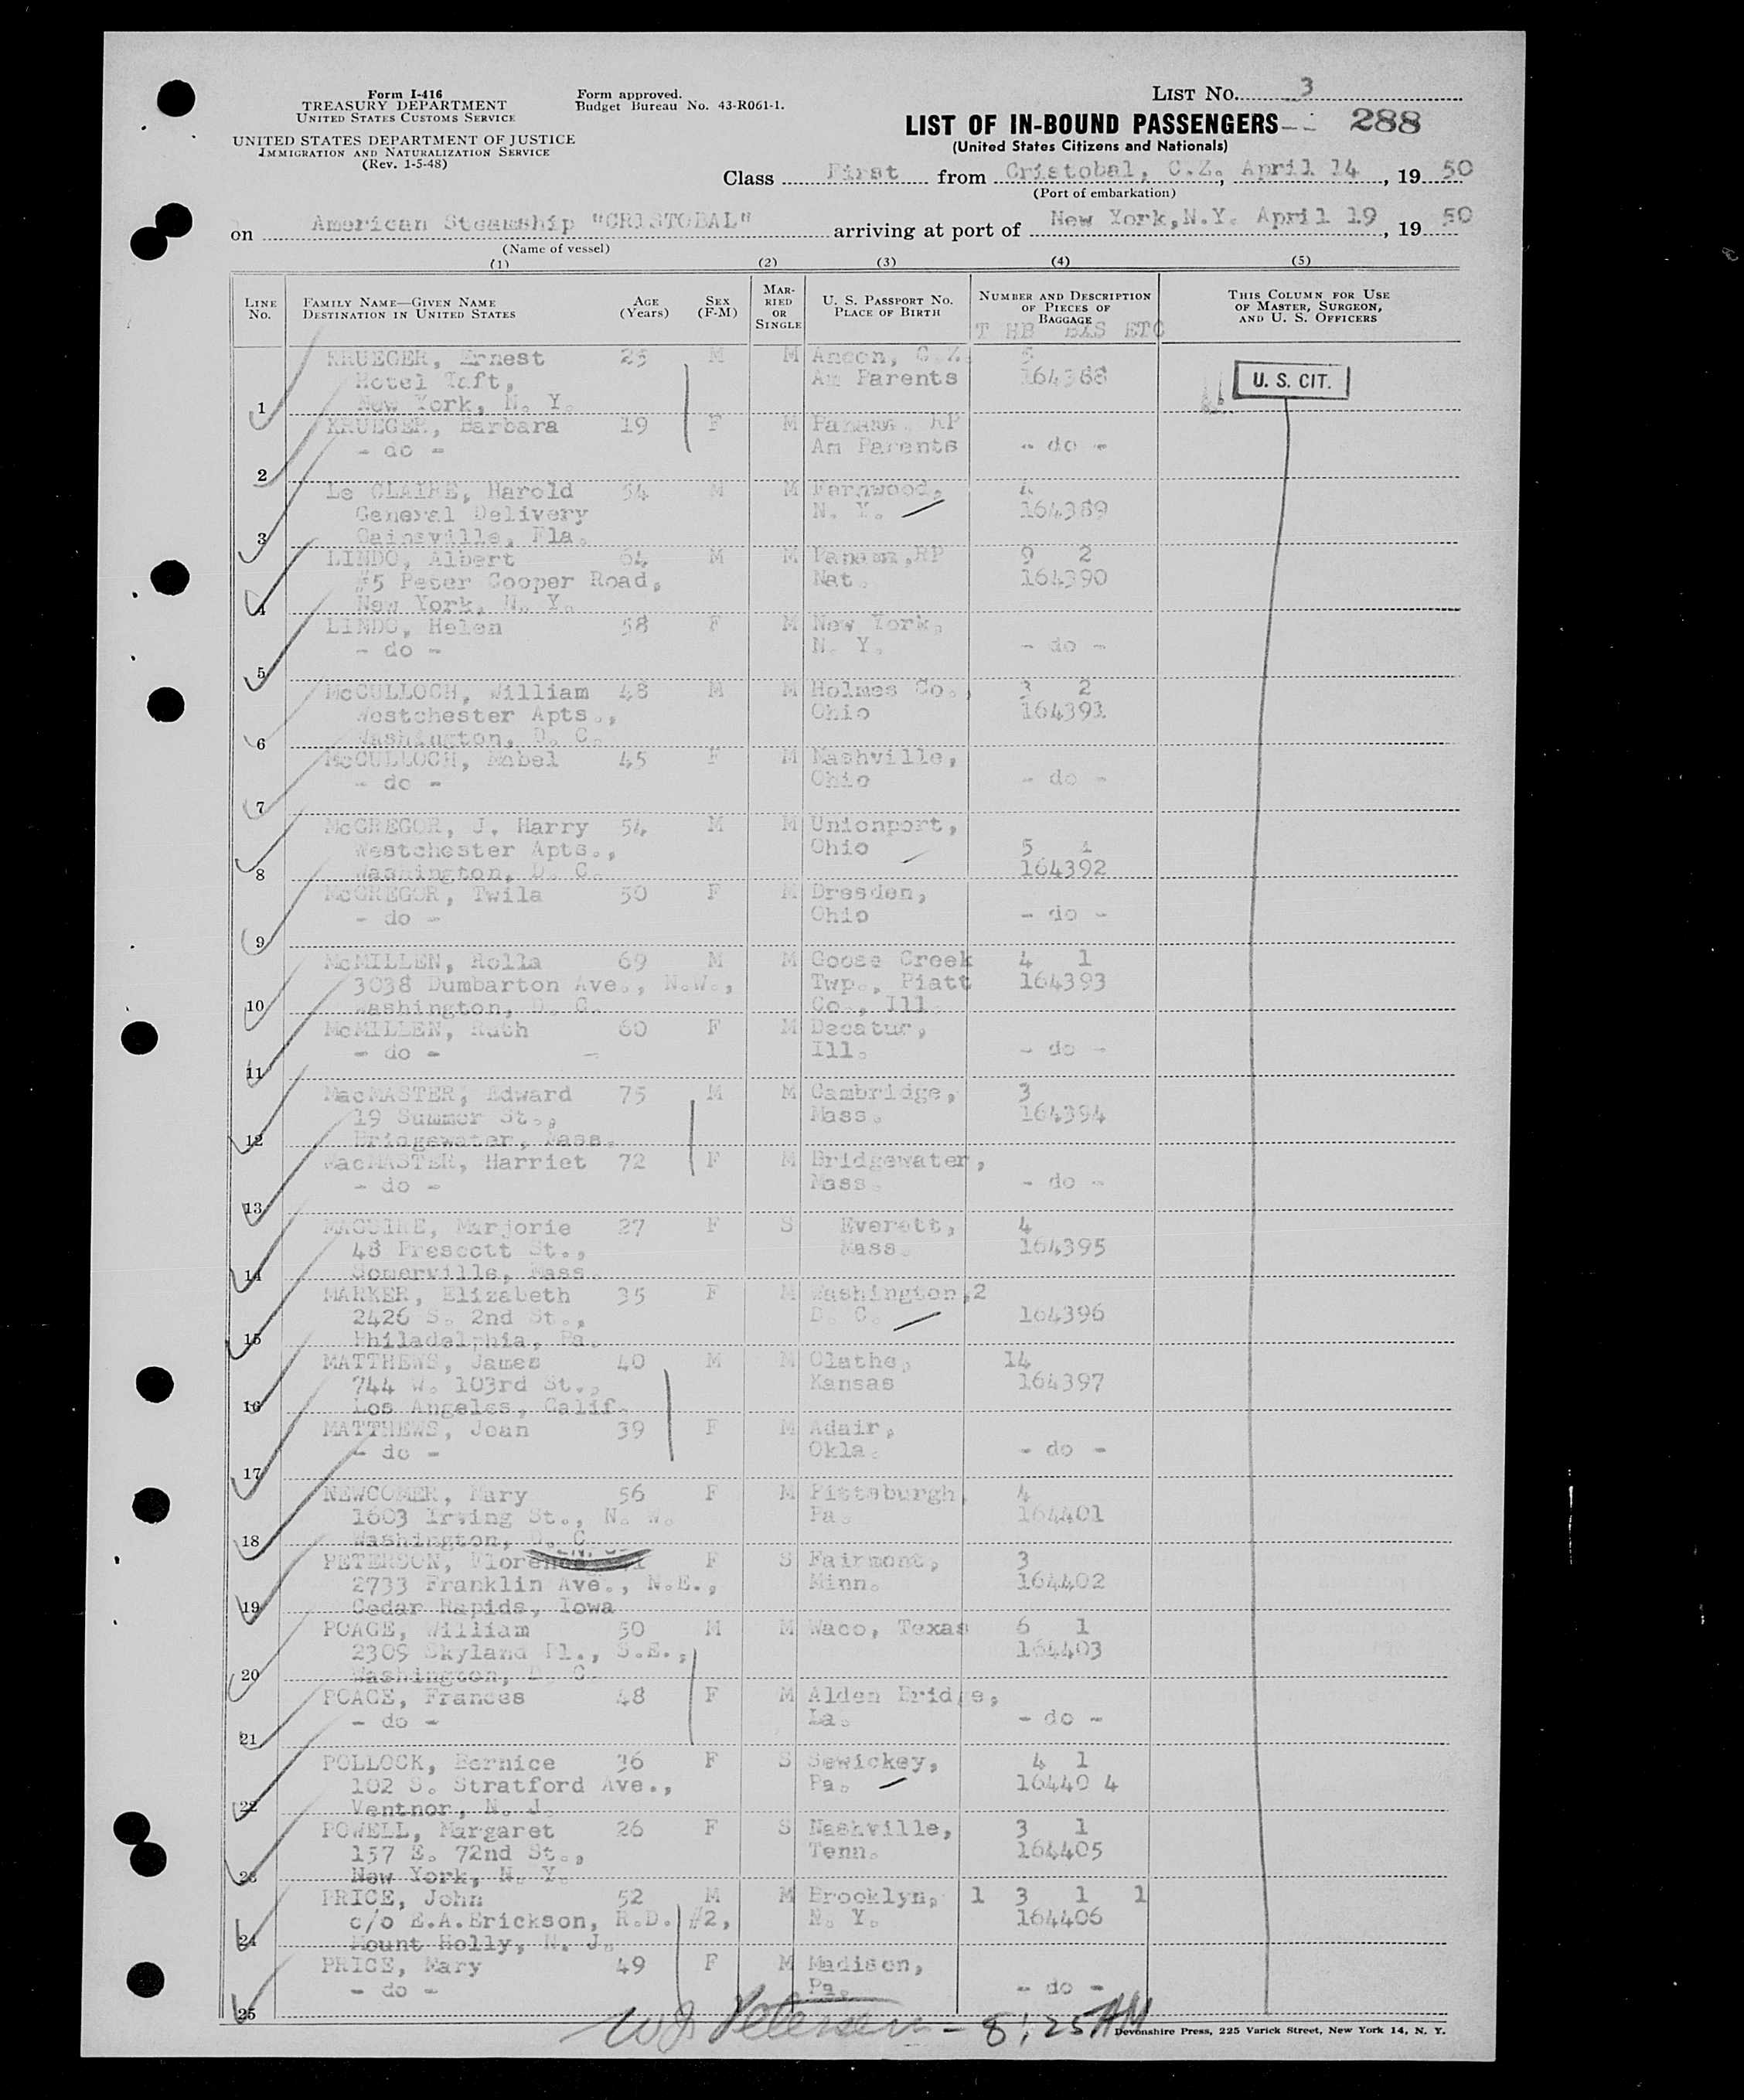 Form I-416
TREASURY DEPARTMENT
UNITED STATES CUSTOMS SERVICE
UNITED STATES DEPARTMENT OF JUSTICE
IMMIGRATION AND NATURALIZATION SERVICE
(Rev. 1-5-48)
Form approved.
Budget Bureau No. 43-R061-1.
LIST NO. 3
LIST OF IN-BOUND PASSENGERS 288
(United States Citizens and Nationals)
Class First from Cristobal, C.Z., April 14, 19 50
(Port of embarkation)
on American Steamship "CRISTOBAL" arriving at port of New York, N.Y. April 19, 19 50
(Name of vessel)
(1) (2) (3) (4) (5)
LINE NO. FAMILY NAME—GIVEN NAME DESTINATION IN UNITED STATES AGE (Years) SEX (F-M) MARRIED OR SINGLE U. S. PASSPORT NO. PLACE OF BIRTH NUMBER AND DESCRIPTION OF PIECES OF BAGGAGE THIS COLUMN FOR USE OF MASTER, SURGEON, AND U. S. OFFICERS
T HB BAS ETC
KRUEGER, Ernest 25 M M Ancon, C.Z. 5
Hotel Taft, Am Parents 164388 U. S. CIT.
1 New York, N. Y.
KRUEGER, Barbara 19 F M Panama, RP
- do - Am Parents - do -
2
Le CLAIRE, Harold 54 M M Farnwood, 4
General Delivery N. Y. 164389
3 Gainsville, Fla.
LINDO, Albert 64 M M Panama, RP 9 2
#5 Peter Cooper Road, Nat. 164390
4 New York, N. Y.
LINDO, Helen 58 F M New York,
- do - N. Y. - do -
5
McCULLOCH, William 48 M M Holmes Co., 3 2
Westchester Apts., Ohio 164391
6 Washington, D. C.
McCULLOCH, Mabel 45 F M Nashville,
- do - Ohio - do -
7
McGREGOR, J. Harry 54 M M Unionport,
Westchester Apts., Ohio 5 1
8 Washington, D. C. 164392
McGREGOR, Twila 50 F M Dresden,
- do - Ohio - do -
9
McMILLEN, Rolla 69 M M Goose Creek 4 1
3038 Dumbarton Ave., N.W., Twp., Piatt 164393
10 Washington, D. C. Co., Ill.
McMILLEN, Ruth 60 F M Decatur,
- do - Ill. - do -
11
MacMASTER, Edward 75 M M Cambridge, 3
19 Summer St., Mass. 164394
12 Bridgewater, Mass.
MacMASTER, Harriet 72 F M Bridgewater,
- do - Mass. - do -
13
MAGUIRE, Marjorie 27 F S Everett, 4
48 Prescott St., Mass. 164395
14 Somerville, Mass.
MARKER, Elizabeth 35 F M Washington, 2
2426 S. 2nd St., D. C. 164396
15 Philadelphia, Pa.
MATTHEWS, James 40 M M Olathe, 14
744 W. 103rd St., Kansas 164397
16 Los Angeles, Calif.
MATTHEWS, Jean 39 F M Adair,
- do - Okla. - do -
17
NEWCOMER, Mary 56 F M Pittsburgh, 4
1603 Irving St., N. W. Pa. 164401
18 Washington, D. C.
PETERSON, Florence F S Fairmont, 3
2733 Franklin Ave., N.E., Minn. 164402
19 Cedar Rapids, Iowa
POAGE, William 50 M M Waco, Texas 6 1
2309 Skyland Pl., S.E., 164403
20 Washington, D. C.
POAGE, Frances 48 F M Alden Bridge,
- do - La. - do -
21
POLLOCK, Bernice 36 F S Sewickey, 4 1
102 S. Stratford Ave., Pa. 16440 4
22 Ventnor, N. J.
POWELL, Margaret 26 F S Nashville, 3 1
157 E. 72nd St., Tenn. 164405
23 New York, N. Y.
PRICE, John 52 M M Brooklyn, 1 3 1 1
c/o E.A.Erickson, R.D. #2, N. Y. 164406
24 Mount Holly, N. J.
PRICE, Mary 49 F M Madison,
- do - Pa. - do -
25
WJ Petersen - 8:25 AM
Devonshire Press, 225 Varick Street, New York 14, N. Y.